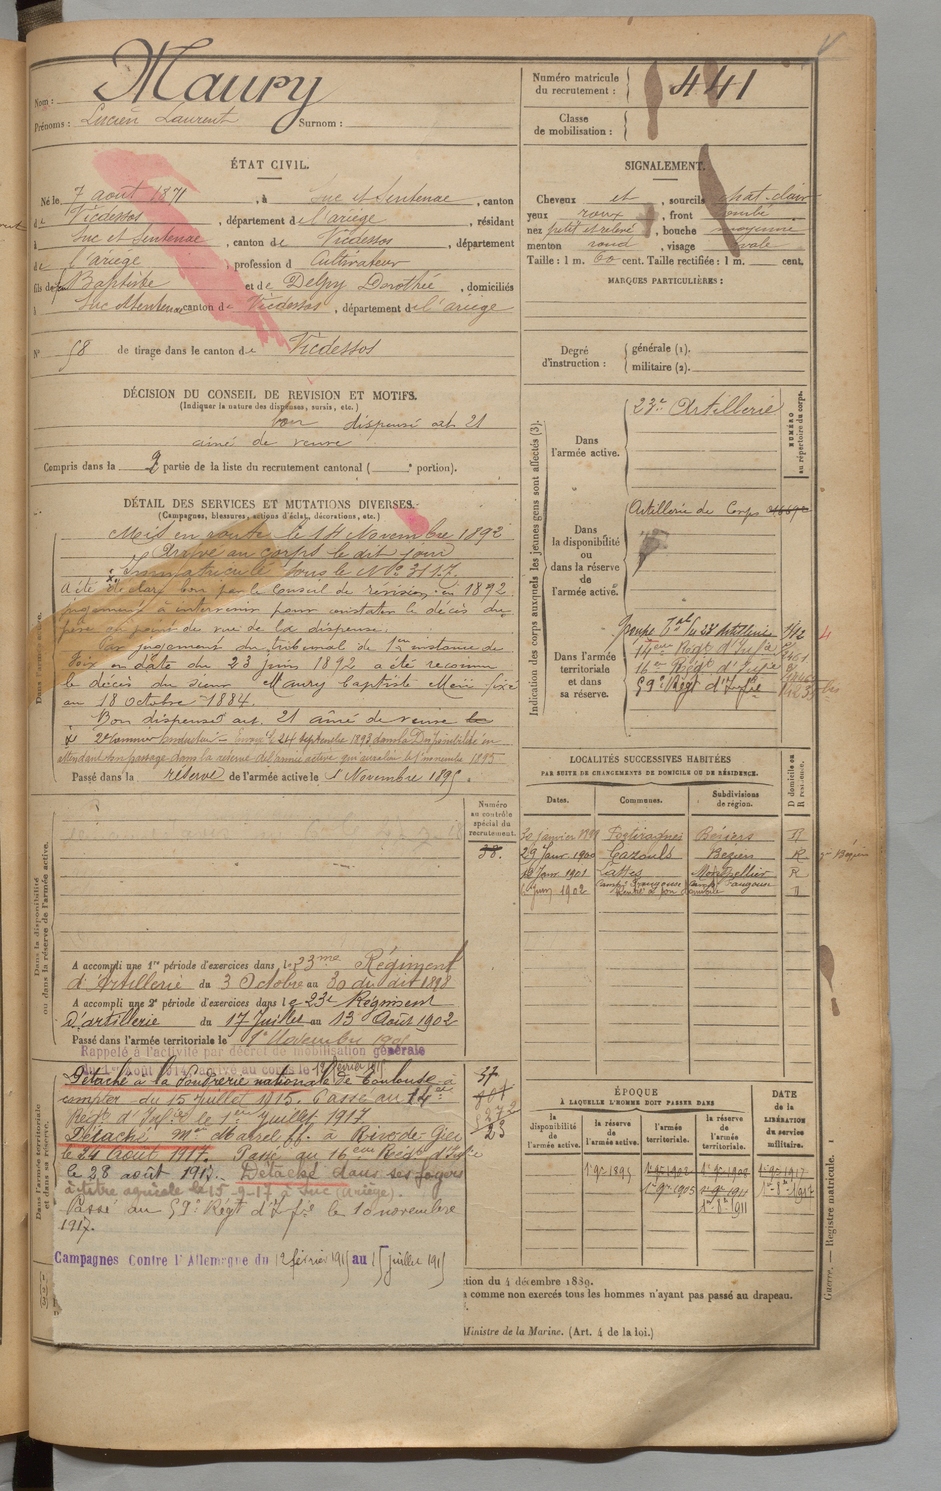 Nom : Maury
Prénoms : Lucien Laurent Surnom :
Numéro matricule du recrutement : 441
Classe de mobilisation :
ÉTAT CIVIL.
Né le 7 août 1871, à Suc et Sentenac, canton
de Vicdessos, département de l'ariège, résidant
à Suc et Sentenac, canton de Vicdessos, département
de l'ariège, profession de Cultivateur
fils de feu Baptiste et de Delpy Dorothée, domiciliés
à Suc et Sentenac canton de Vicdessos, département de l'ariège
N° 58 de tirage dans le canton de Vicdessos
SIGNALEMENT.
Cheveux et, sourcils chat. clair
yeux roux, front bombé
nez petit et relevé, bouche moyenne
menton rond, visage ovale
Taille : 1 m. 60 cent. Taille rectifiée : 1 m. cent.
MARQUES PARTICULIÈRES :
Degré d'instruction : générale (1).
militaire (2).
DÉCISION DU CONSEIL DE REVISION ET MOTIFS.
(Indiquer la nature des dispenses, sursis, etc.)
bon dispensé art 21
ainé de veuve
Compris dans la 2 partie de la liste du recrutement cantonal ( e portion).
DÉTAIL DES SERVICES ET MUTATIONS DIVERSES.
(Campagnes, blessures, actions d'éclat, décorations, etc.)
Dans l'armée active.
Mis en route le 14 Novembre 1892
Arrivé au corps le dit jour
immatriculé sous le N° 3117.
A été déclaré bon par le Conseil de révision en 1892
jugement à intervenir pour constater le décès du
père au point de vue de la dispense.
Par jugement du tribunal de 1re instance de
Foix en date du 23 juin 1892 a été reconnu
le décès du sieur Maury baptiste fixé
au 18 Octobre 1884.
Bon dispensé art. 21 aîné de veuve
2e Canonnier conducteur - Envoyé le 24 Septembre 1893 dans la Disponibilité en
attendant son passage dans la réserve de l'armée active qui aura lieu le 1er novembre 1895
Passé dans la réserve de l'armée active le 1 Novembre 1895.
Indication des corps auxquels les jeunes gens sont affectés (3).
NUMÉRO au répertoire du corps.
Dans l'armée active. 23e Artillerie
Dans la disponibilité ou dans la réserve de l'armée active.
Artillerie de Corps
Dans l'armée territoriale et dans sa réserve.
Groupe Tal du 23e Artillerie
14eme Régt d'Infie
16e Régt d'Infie
59e Régt d'Infie
LOCALITÉS SUCCESSIVES HABITÉES
PAR SUITE DE CHANGEMENTS DE DOMICILE OU DE RÉSIDENCE.
Dates. Communes. Subdivisions de région. D domicile ou R résidence.
20 janvier 1899 Portiragnes Béziers R
29 Janv. 1900 Cazouls Beziers R
12 Janv 1901 Lattes Montpellier R
Juin 1902
Numéro au contrôle spécial du recrutement.
38.
Dans la disponibilité ou dans la réserve de l'armée active.
A accompli une 1re période d'exercices dans le 23me Régiment
d'Artillerie du 3 Octobre au 30 du dit 1898
A accompli une 2e période d'exercices dans le 23e Régiment
D'artillerie du 17 Juillet au 13 Août 1902
Passé dans l'armée territoriale le 1er Novembre
Rappelé à l'activité par décret de mobilisation générale
du 1er Août 1914 arrivé au corps le 12 février 1915
Dans l'armée territoriale et dans sa réserve.
Détaché à la Poudrerie nationale de Toulouse à
compter du 15 Juillet 1915. Passé au 14e
Régt d'Infie le 1er Juillet 1917
Détaché Mon Marrel ff. à Rive-de-Gier
le 24 Août 1917. Passé au 16eme Régt d'Infie
le 28 août 1917. Détaché dans ses foyers
à titre agricole le 15-9-17 à Suc (Ariège).
Passé au 59e Régt d'Infie le 10 novembre
1917.
Campagnes Contre l'Allemagne du 12 février 1915 au 15 juillet 1915
37
23
ÉPOQUE
À LAQUELLE L'HOMME DOIT PASSER DANS
la disponibilité de l'armée active.
la réserve de l'armée active.
l'armée territoriale.
la réserve de l'armée territoriale.
DATE de la LIBÉRATION du service militaire.
1er 9bre 1895 1er 9bre 1902 1er 9bre 1908 1er 9bre 1917
1er 9bre 1905 1er 9bre 1911
ction du 4 décembre 1889.
a comme non exercés tous les hommes n'ayant pas passé au drapeau.
Ministre de la Marine. (Art. 4 de la loi.)
Guerre. — Registre matricule. 1